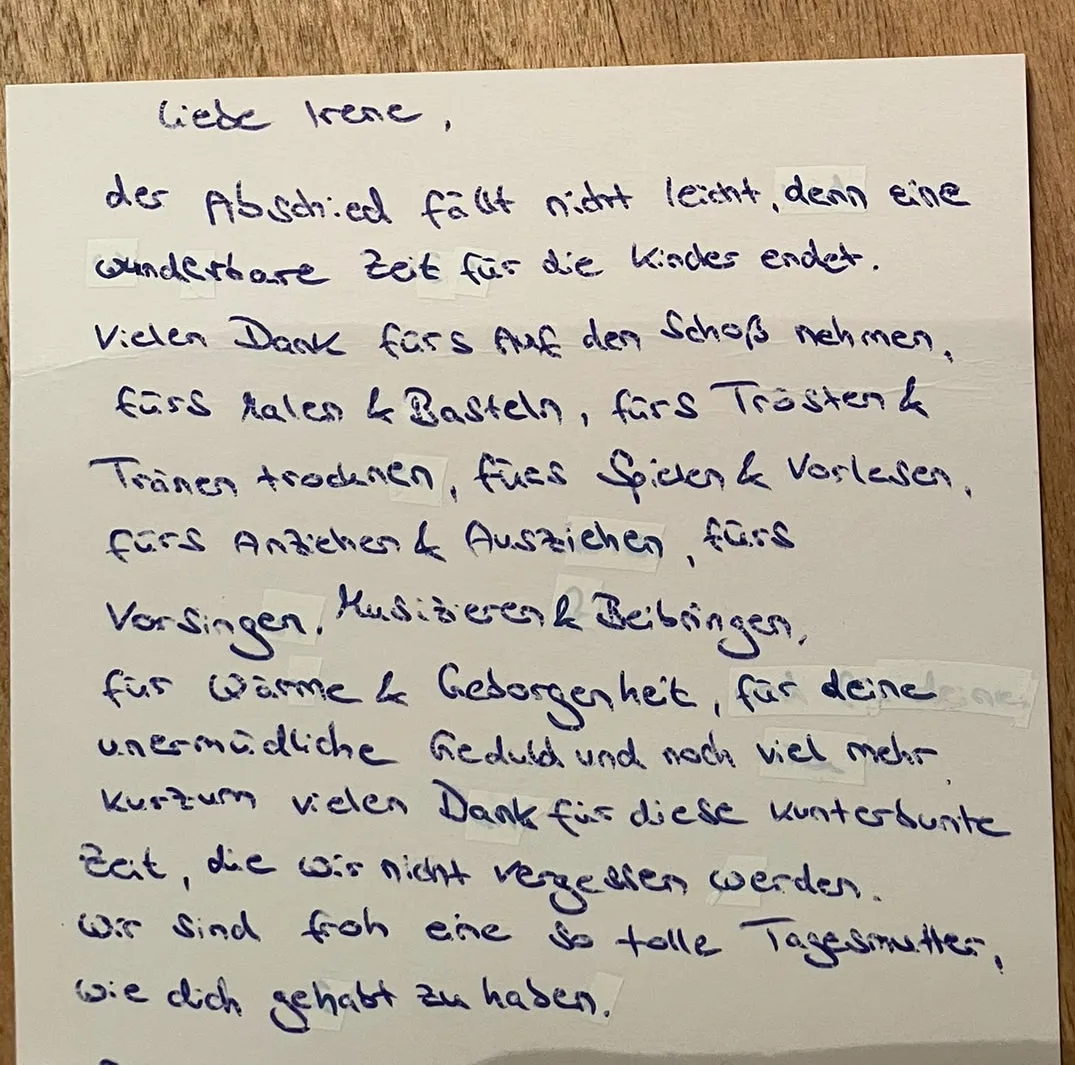 Liebe Irene,
der Abschied fällt nicht leicht, denn eine
wunderbare Zeit für die Kinder endet.
Vielen Dank fürs Auf den Schoß nehmen,
fürs Malen & Basteln, fürs Trösten &
Tränen trocknen, fürs Spielen & Vorlesen,
fürs Anziehen & Ausziehen, fürs
Vorsingen, Musizieren & Beibringen,
für Wärme & Geborgenheit, für deine
unermüdliche Geduld und noch viel mehr.
Kurzum vielen Dank für diese kunterbunte
Zeit, die wir nicht vergessen werden.
Wir sind froh eine so tolle Tagesmutter,
wie dich gehabt zu haben.